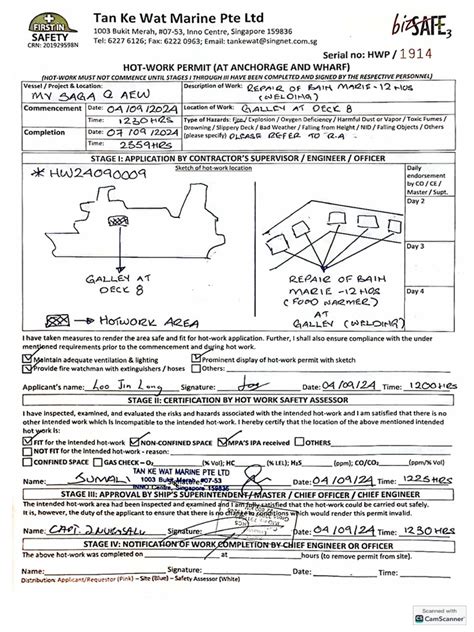 FIRST IN
SAFETY
CRN: 201929598N
Tan Ke Wat Marine Pte Ltd
1003 Bukit Merah, #07-53, Inno Centre, Singapore 159836
Tel: 6227 6126; Fax: 6222 0963; Email: tankewat@singnet.com.sg
bizSAFE3
Serial no: HWP / 1914
HOT-WORK PERMIT (AT ANCHORAGE AND WHARF)
(HOT-WORK MUST NOT COMMENCE UNTIL STAGES I THROUGH III HAVE BEEN COMPLETED AND SIGNED BY THE RESPECTIVE PERSONNEL)
Vessel / Project & Location:
MV SAGA
Description of Work: REPAIR OF BAIN MARIE - 12 NOS
(WELDING)
Commencement Date: 04/09/2024
Location of Work: GALLEY AT DECK 8
Time: 1230HRS
Type of Hazards: Fire / Explosion / Oxygen Deficiency / Harmful Dust or Vapor / Toxic Fumes /
Drowning / Slippery Deck / Bad Weather / Falling from Height / NID / Falling Objects / Others
(please specify) PLEASE REFER TO R.A
Completion Date: 07/09/2024
Time: 2359HRS
STAGE I: APPLICATION BY CONTRACTOR'S SUPERVISOR / ENGINEER / OFFICER
Sketch of hot-work location
* HW24090009
Daily
endorsement
by CO / CE /
Master / Supt.
Day 2
Day 3
Day 4
GALLEY AT
DECK 8
REPAIR OF BAIN
MARIE - 12 NOS
(FOOD WARMER)
AT
GALLEY (WELDING)
→ HOTWORK AREA
I have taken measures to render the area safe and fit for hot-work application. Further, I shall also ensure compliance with the under
mentioned requirements prior to the commencement and during hot work.
☑ Maintain adequate ventilation & lighting ☑ Prominent display of hot-work permit with sketch
☑ Provide fire watchman with extinguishers / hoses ☐ Others:
Applicant's name: Loo Jin Long Signature: Date: 04/09/24 Time: 1200HRS
STAGE II: CERTIFICATION BY HOT WORK SAFETY ASSESSOR
I have inspected, examined, and evaluated the risks and hazards associated with the intended hot-work and I am satisfied that there is no
other intended work which is incompatible to the intended hot-work. I hereby certify that the location of the above mentioned intended
hot work is:
☑ FIT for the intended hot-work ☑ NON-CONFINED SPACE ☑ MPA'S IPA received ☐ OTHERS
☐ NOT FIT for the intended hot-work - reason:
☐ CONFINED SPACE ☐ GAS CHECK – O2 (% Vol); HC (% LEL); H2S (ppm); CO/CO2 (ppm/% Vol)
TAN KE WAT MARINE PTE LTD
1003 Bukit Merah, #07-53
INNO Centre, Singapore 159836
Name: Signature: Date: 04/09/24 Time: 1225HRS
STAGE III: APPROVAL BY SHIP'S SUPERINTENDENT / MASTER / CHIEF OFFICER / CHIEF ENGINEER
The intended hot-work area had been inspected and examined and I am fully satisfied that the hot-work could be carried out safely.
It is, however, the duty of the applicant to ensure that there is no change to conditions which would render this permit invalid.
Name: CAPT. Signature: Date: 04/09/24 Time: 1230HRS
STAGE IV: NOTIFICATION OF WORK COMPLETION BY CHIEF ENGINEER OR OFFICER
The above hot-work was completed on at hours (to remove permit from site).
Name: Signature: Date: Time:
Distribution: Applicant/Requestor (Pink) – Site (Blue) – Safety Assessor (White)
Scanned with
CS CamScanner